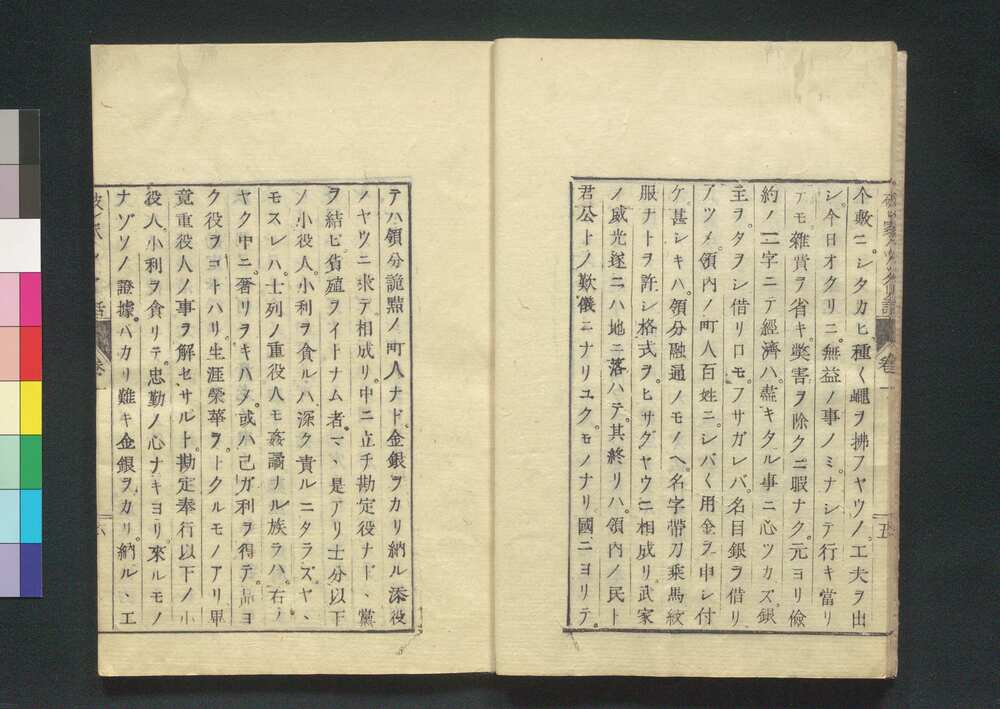 个敷ニシタカヒ種〱蠅ヲ拂フヤウノ工夫ヲ出
シ今日オクリニ無益ノ事ノミナシテ行キ當リ
テモ雜貨ヲ省キ奬書ヲ除クニ暇ナク元ヨリ儉
約ノ二字ニテ經濟ハ盡キタル事ニ心ツカズ銀
主ヲタヲシ借リロモフサガレバ名目銀ヲ借リ
アツメ領内ノ町人百姓ニシバ〱用金ヲ申シ付
ケ甚シキハ領分融通ノモノヘ名字帶刀乘馬紋
服ナトヲ許シ格式ヲヒサグヤウニ相成リ武家
ノ威光遂ニハ地ニ落ハテ其終リハ領内ノ民ト
君公トノ歎儀ニナリユクモノナリ國ニヨリテ
卷一
五
テハ領分詭點ノ町人ナド金銀ヲカリ納ル添役
ノヤウニ求テ相成リ中ニ立チ勘定役ナド、黨
ヲ結ビ貨殖ヲイトナム者マヽ是アリ士分以下
ノ小役人小利ヲ食ルハ深ク責ルニタラズヤヽ
モスレハ士列ノ重役人モ姦譎ナル族ラハ右ノ
ヤク中ニ奢リヲキハメ或ハ己ガ利ヲ得テ品ヨ
ク役ヲコトハリ生涯榮華ヲトクルモノアリ畢
竟重役人ノ事ヲ解セサルト勘定奉行以下ノ小
役人小利ヲ貪リテ忠勤ノ心ナキヨリ來ルモノ
ナゾソノ證據ハカリ難キ金銀ヲカリ納ル、工
卷一